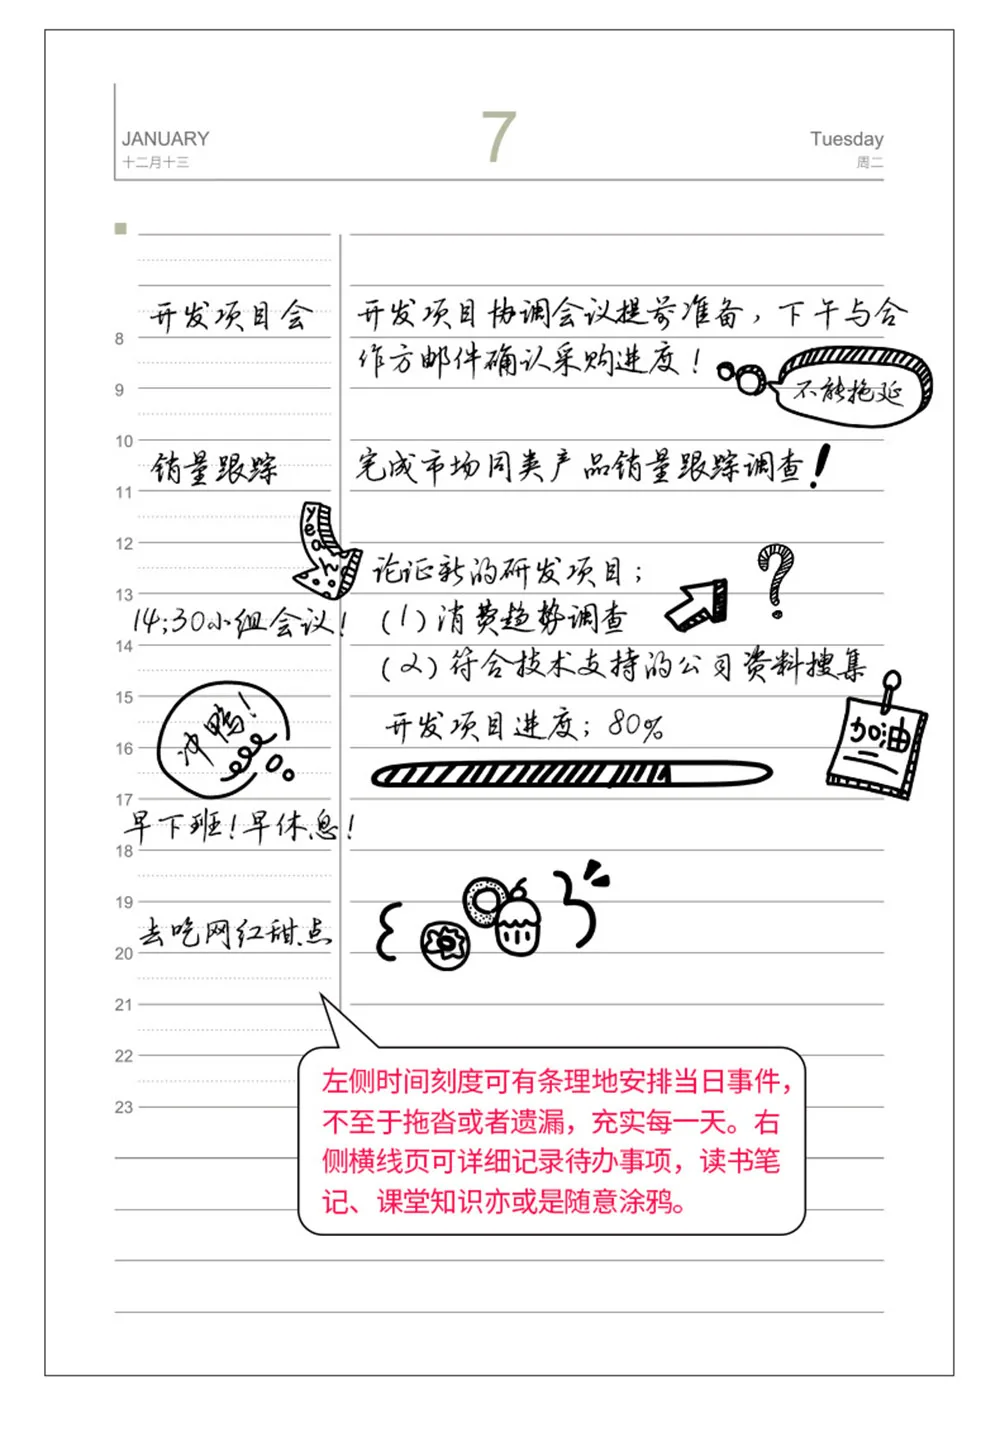 JANUARY
十二月十三
7
Tuesday
周二
开发项目会
开发项目协调会议提前准备，下午与合
作方邮件确认采购进度！
不能拖延
8
9
10
销量跟踪
完成市场同类产品销量跟踪调查！
11
yeah
12
论证新的研发项目；
?
13
14:30小组会议！
(1)消费趋势调查
14
(2)符合技术支持的公司资料搜集
15
冲鸭！
开发项目进度；80%
加油
16
17
早下班！早休息！
18
19
去吃网红甜点
20
21
22
23
左侧时间刻度可有条理地安排当日事件，
不至于拖沓或者遗漏，充实每一天。右
侧横线页可详细记录待办事项，读书笔
记、课堂知识亦或是随意涂鸦。